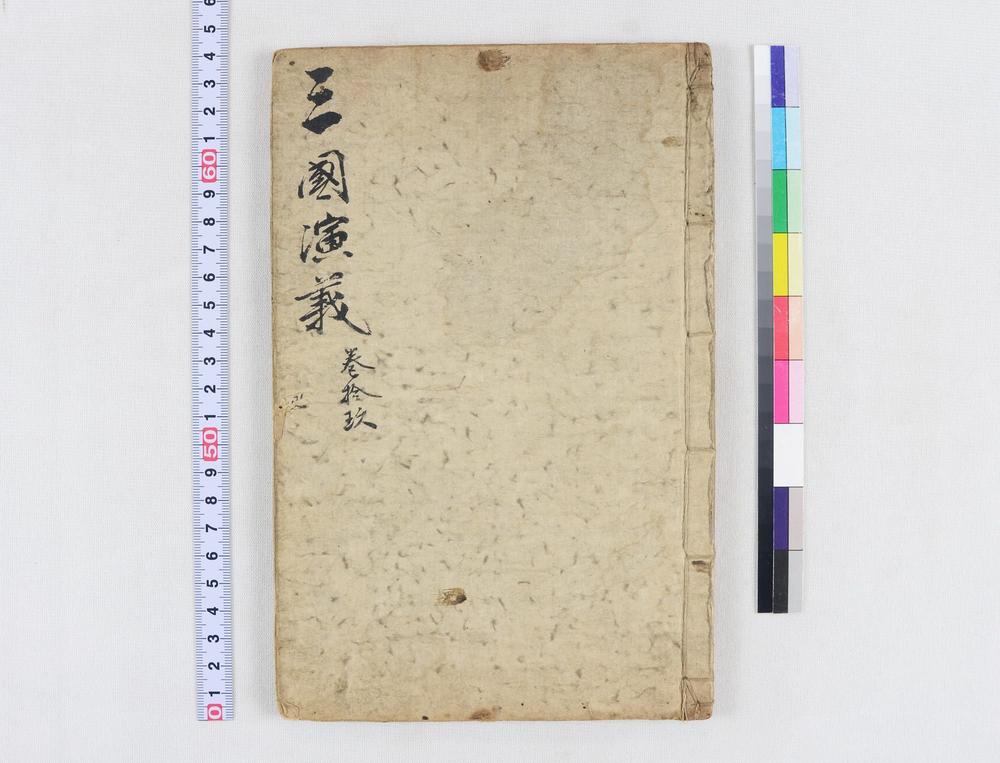 三國演義
卷拾玖
5 4 3 2 1 60 9 8 7 6 5 4 3 2 1 50 9 8 7 6 5 4 3 2 1 0